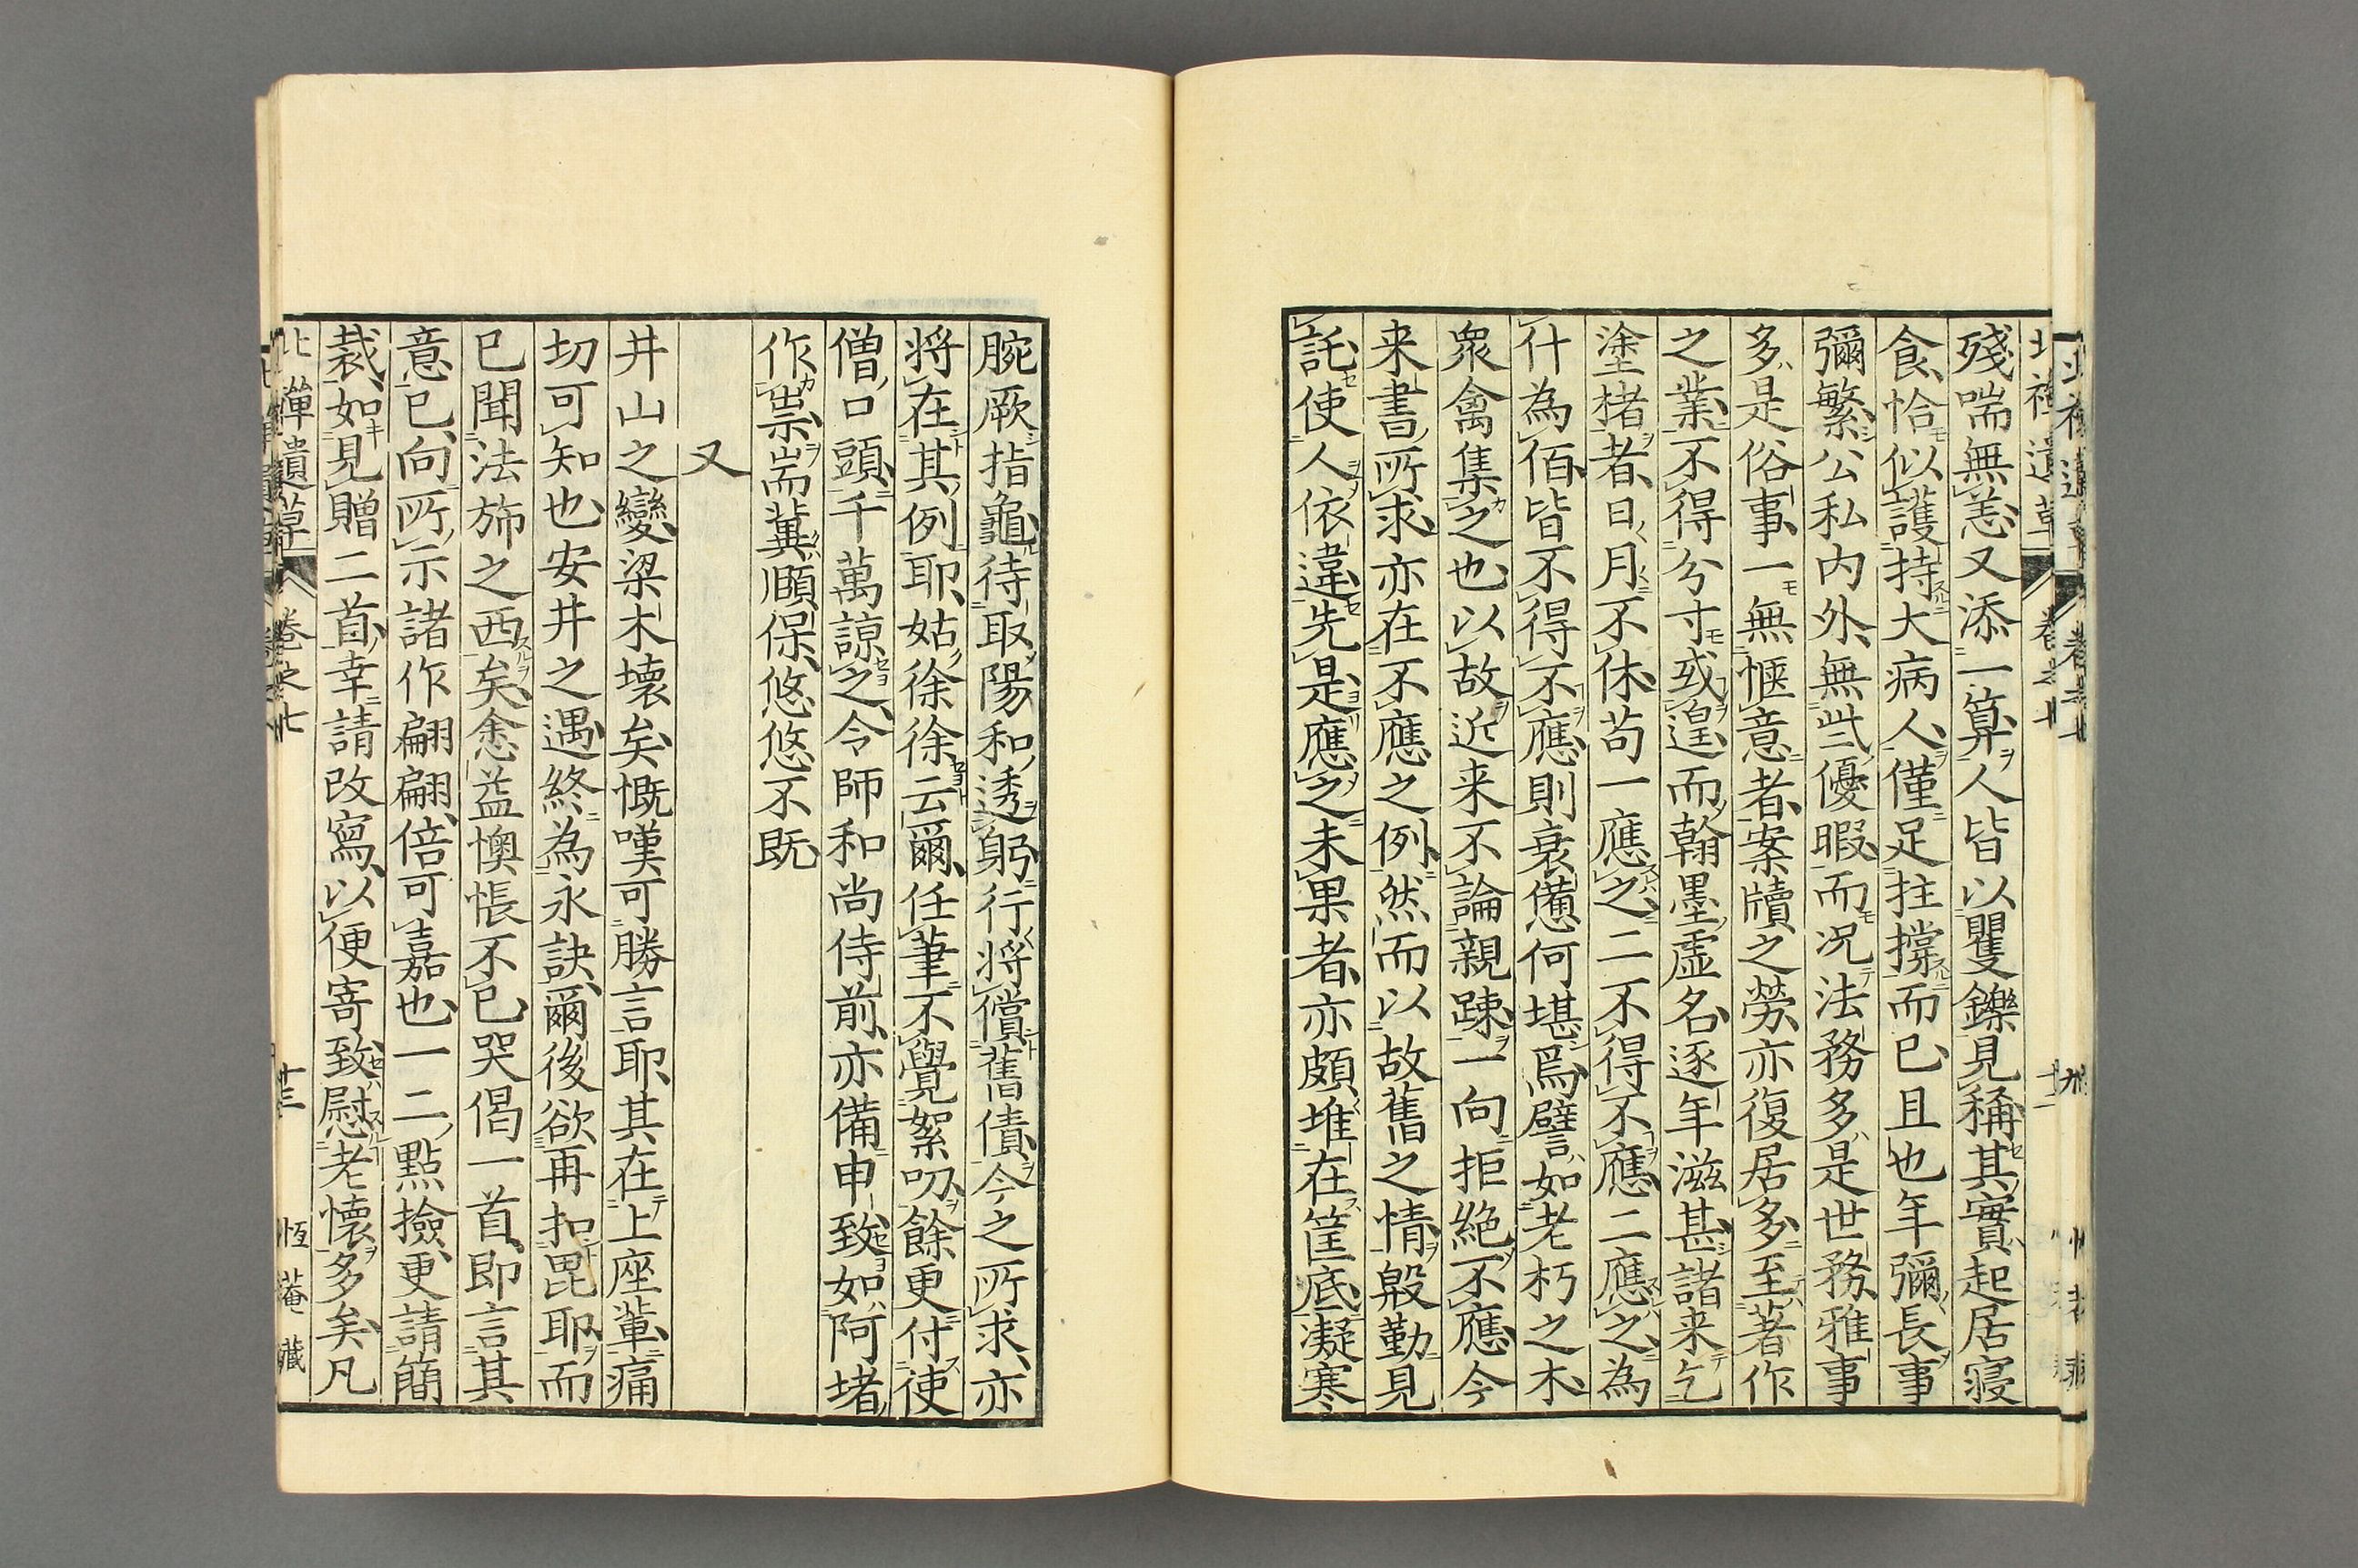 殘喘無恙又添一算人皆以矍鑠見稱其實起居寢
食恰似護持大病人僅足拄撐而已且也年彌長事
彌繁公私內外無些優暇而況法務多是世務雅事
多是俗事一無愜意者案牘之勞亦復居多至著作
之業不得分寸或遑而翰墨虛名逐年滋甚諸来乞
塗楮者日月不休苟一應之二不得不應二應之為
什為佰皆不得不應則衰憊何堪焉譬如老朽之木
衆禽集之也以故近来不論親踈一向拒絕不應今
来書所求亦在不應之例然而以故舊之情殷勤見
託使人依違先是應之未果者亦頗堆在筐底凝寒
腕厥指龜待取陽和透躬行將償舊債今之所求亦
将在其例耶姑徐徐云爾任筆不覺絮叨餘更付使
僧口頭千萬諒之令師和尚侍前亦備申致如阿堵
作祟耑冀願保悠悠不既
又
井山之變梁木壞矣慨嘆可勝言耶其在上座輩痛
切可知也安井之遇終為永訣爾後欲再扣毘耶而
已聞法旆之西矣悆益懊悵不已哭偈一首即言其
意已向所示諸作翩翩倍可嘉也一二點撿更請簡
裁如見贈二首幸請改寫以便寄致慰老懷多矣凡
北禪遺草 卷之七 十三 恆菴藏